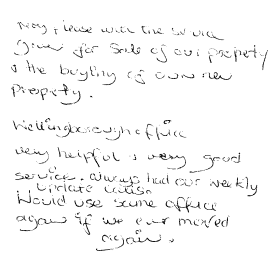 very please with the service
given for sale of our property
& the buying of our new
property.
Wellingborough office
very helpful & very good
service. always had our weekly
update calls
Would use same office
again if we ever moved
again.